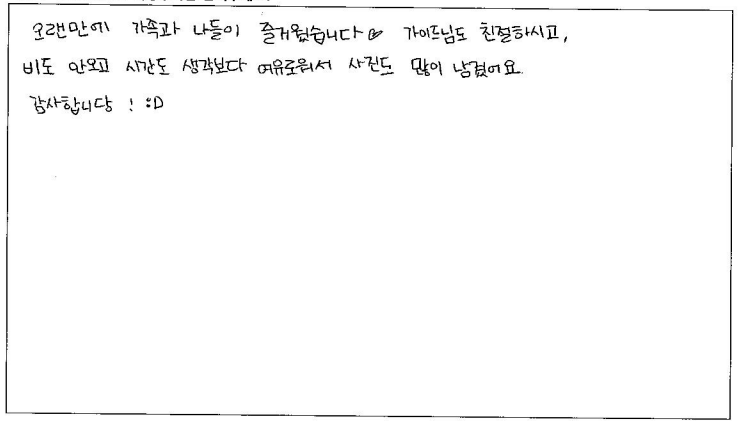 오랜만에 가족과 나들이 즐거웠습니다♡ 가이드님도 친절하시고,
비도 안오고 시간도 생각보다 여유로워서 사진도 많이 남겼어요.
감사합니당 ! :D